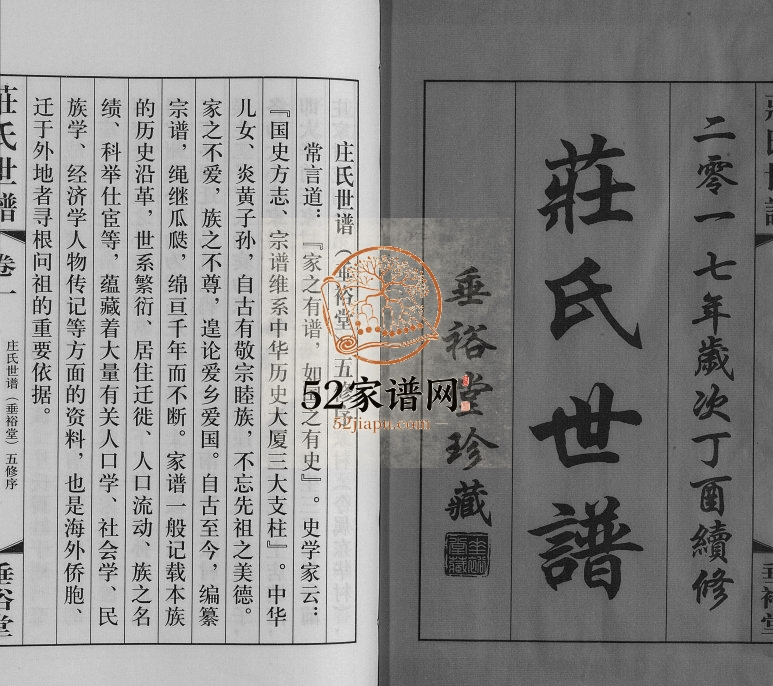 二零一七年歲次丁酉續修
莊氏世譜
垂裕堂珍藏
庄氏世谱（垂裕堂）五修序
常言道：『家之有谱，如国之有史』。史学家云：
『国史方志、宗谱维系中华历史大厦三大支柱』。中华
儿女、炎黄子孙，自古有敬宗睦族，不忘先祖之美德。
家之不爱，族之不尊，遑论爱乡爱国。自古至今，编纂
宗谱，绳继瓜瓞，绵亘千年而不断。家谱一般记载本族
的历史沿革，世系繁衍、居住迁徙、人口流动、族之名
绩、科举仕宦等，蕴藏着大量有关人口学、社会学、民
族学、经济学人物传记等方面的资料，也是海外侨胞、
迁于外地者寻根问祖的重要依据。
莊氏世譜
卷一
庄氏世谱（垂裕堂）五修序
垂裕堂
莊氏世譜
垂裕堂
52家谱网
52jiapu.com